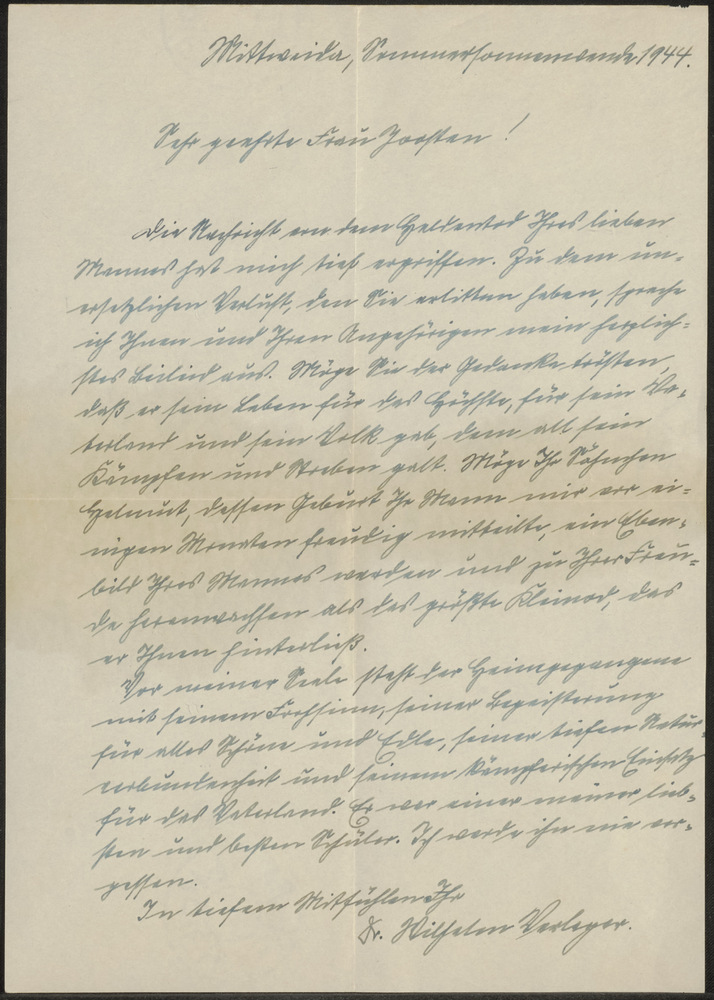 Mittweida, Sommersonnenwende 1944.
Sehr geehrte Frau Joosten!
Die Nachricht von dem Heldentod Ihres lieben
Mannes hat mich tief ergriffen. Zu dem un-
ersetzlichen Verlust, den Sie erlitten haben, spreche
ich Ihnen und Ihren Angehörigen mein herzlich-
stes Beileid aus. Möge Sie der Gedanke trösten,
daß er sein Leben für das Höchste, für sein Va-
terland und sein Volk gab, dem all sein
Kämpfen und Streben galt. Möge Ihr Söhnchen
Helmut, dessen Geburt Ihr Mann mir vor ei-
nigen Monaten freudig mitteilte, ein Eben-
bild Ihres Mannes werden und zu Ihrer Freu-
de heranwachsen als das größte Kleinod, das
er Ihnen hinterließ.
Vor meiner Seele steht der Heimgegangene
mit seinem Frohsinn, seiner Begeisterung
für alles Schöne und Edle, seiner tiefen Natur-
verbundenheit und seinem kämpferischen Einsatz
für das Vaterland. Er war einer meiner lieb-
sten und besten Schüler. Ich werde ihn nie ver-
gessen.
In tiefem Mitfühlen Ihr
Dr. Wilhelm Verleger.